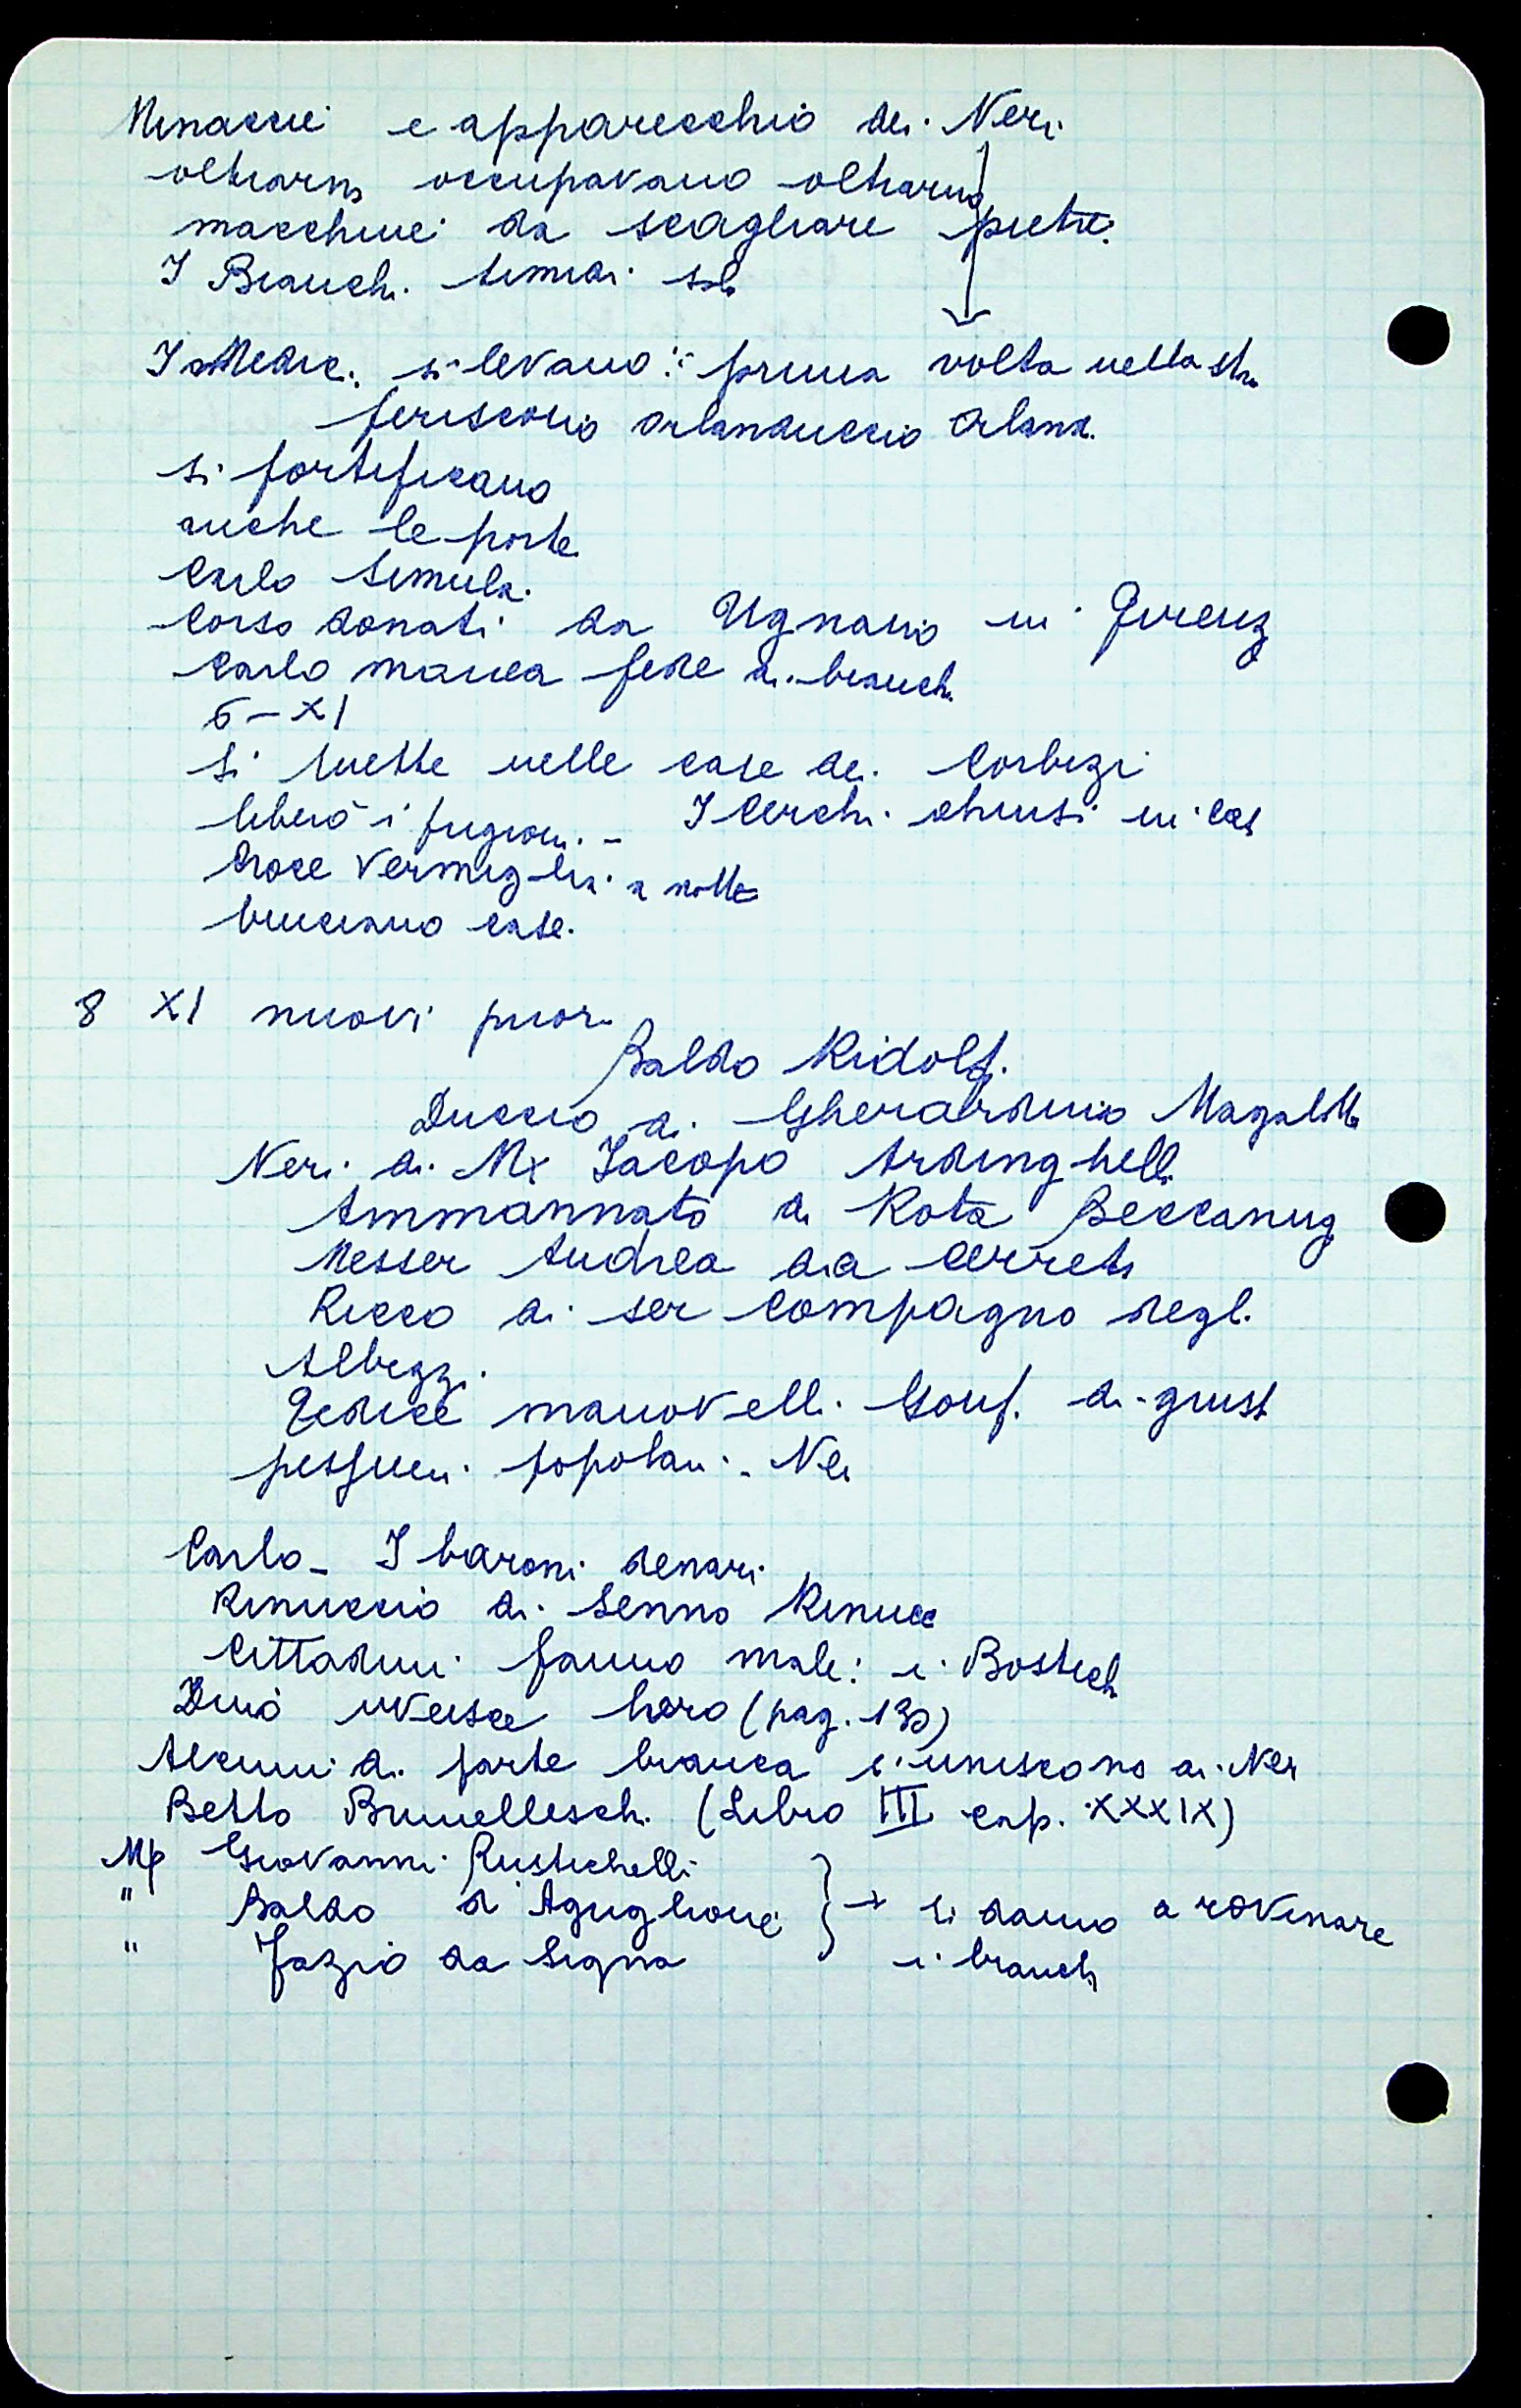 Minaccie e apparecchio dei Neri
oltrarno occupavano oltrarno
macchine da scagliare pietre
I Bianchi timidi solo
I Medici si levano: prima volta nella sto.
feriscono Orlanduccio Orland.
si fortificano
anche le porte
Carlo simula.
Corso Donati da Ugnano in Firenz
Carlo manca fede ai bianchi
5-XI
si mette nelle case dei Corbizi
liberò i prigioni. - I Cerchi chiusi in cas
Croce Vermiglia a notte
bruciano case.
8 XI nuovi prior.
Baldo Ridolfi.
Duccio di Gherardino Magalotti
Neri di Mx Jacopo Ardinghelli
Ammannato di Rota Beccanug
Messer Andrea da Cerreto
Ricco di ser Compagno degli
Albizzi.
Tedice Manovelli. Gonf. di giust
pessimi popolani. Neri
Carlo - I baroni denari
Rinuccio di Senno Rinucc
Cittadini fanno male: i Bostich
Dino (pag. 130)
Alcuni di parte bianca s'uniscono ai Neri
Betto Brunelleschi (Libro III cap. XXXIX)
Mp Giovanni Rustichelli
" Baldo d'Aguglione } → si danno a rovinare
" Fazio da Signa i bianchi